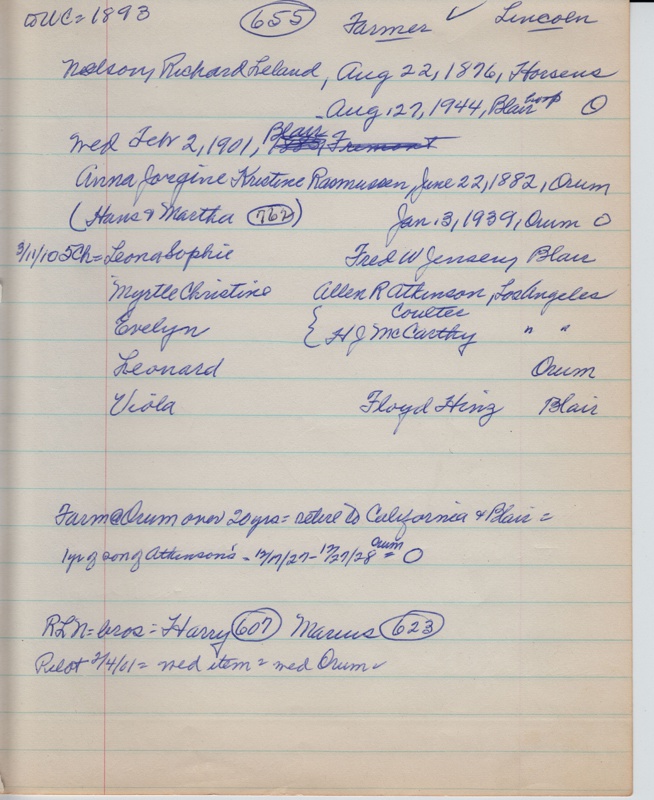 WC = 1893 655 Farmer ✓ Lincoln
Nelson, Richard Leland, Aug 22, 1876, Horsens
- Aug. 27, 1944, Blair hosp O
Wed Feb 2, 1901, Blair ? Fremont
Anna Jorgine Kristine Rasmussen, June 22, 1882, Orum
(Hans & Martha 762) Jan 13, 1939, Orum O
3/11/10 5Ch = Leona Sophie Fred W Jensen, Blair
Myrtle Christine Allen R Atkinson, Los Angeles
Evelyn { Coulter
H J McCarthy " "
Leonard Orum
Viola Floyd Hinz Blair
Farm @ Orum over 20 yrs = retire to California & Blair =
1 yr old son of Atkinson's - 12/27/28 Orum = O
RLN = bros = Harry 607 Marius 623
Pilot 2/4/01 = wed item = wed Orum ✓